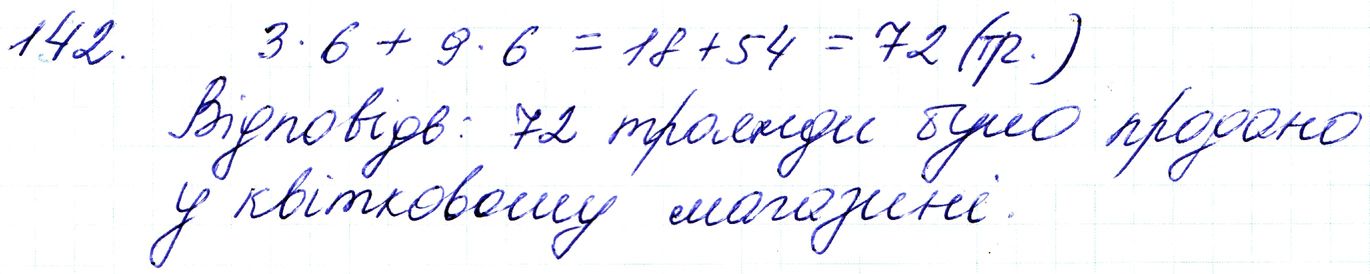 142. 3·6 + 9·6 = 18+54 = 72 (тр.)
Відповідь: 72 троянди було продано
у квітковому магазині.